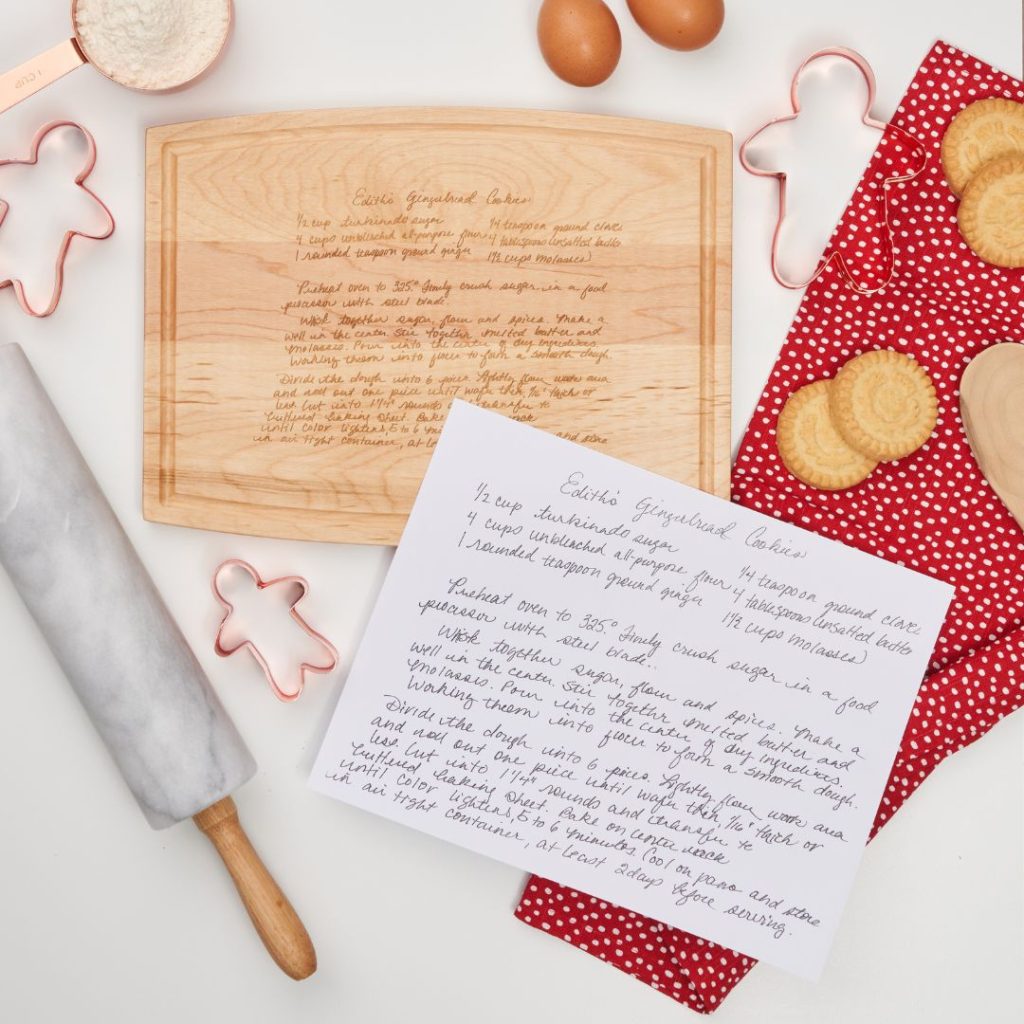 1 CUP
Edith's Gingerbread Cookies
1/2 cup turbinado sugar 1/4 teaspoon ground cloves
4 cups unbleached all-purpose flour 4 tablespoons unsalted butter
1 rounded teaspoon ground ginger 1 1/2 cups molasses
Preheat oven to 325.° Finely crush sugar in a food
processor with steel blade.
Wisk together sugar, flour and spices. Make a
well in the center. Stir together melted butter and
molasses. Pour into the center of dry ingredients.
Working them into flour to form a smooth dough.
Divide the dough into 6 pieces. Lightly flour work area
and roll out one piece until wafer thin, 1/16" thich or
less. Cut into 1 1/4" rounds transfer to
buttered baking sheet. Bake
until color lightens, 5 to 6 and store
in air tight container, at
Edith's Gingerbread Cookies
1/2 cup turbinado sugar 1/4 teaspoon ground cloves
4 cups unbleached all-purpose flour 4 tablespoons unsalted butter
1 rounded teaspoon ground ginger 1 1/2 cups molasses
Preheat oven to 325.° Finely crush sugar in a food
processor with steel blade.
Wisk together sugar, flour and spices. Make a
well in the center. Stir together melted butter and
molasses. Pour into the center of dry ingredients.
Working them into flour to form a smooth dough.
Divide the dough into 6 pieces. Lightly flour work area
and roll out one piece until wafer thin, 1/16" thich or
less. Cut into 1 1/4" rounds and transfer to
buttered baking sheet. Bake on center rack
until color lightens, 5 to 6 minutes. Cool on pans and store
in air tight container, at least 2 days before serving.